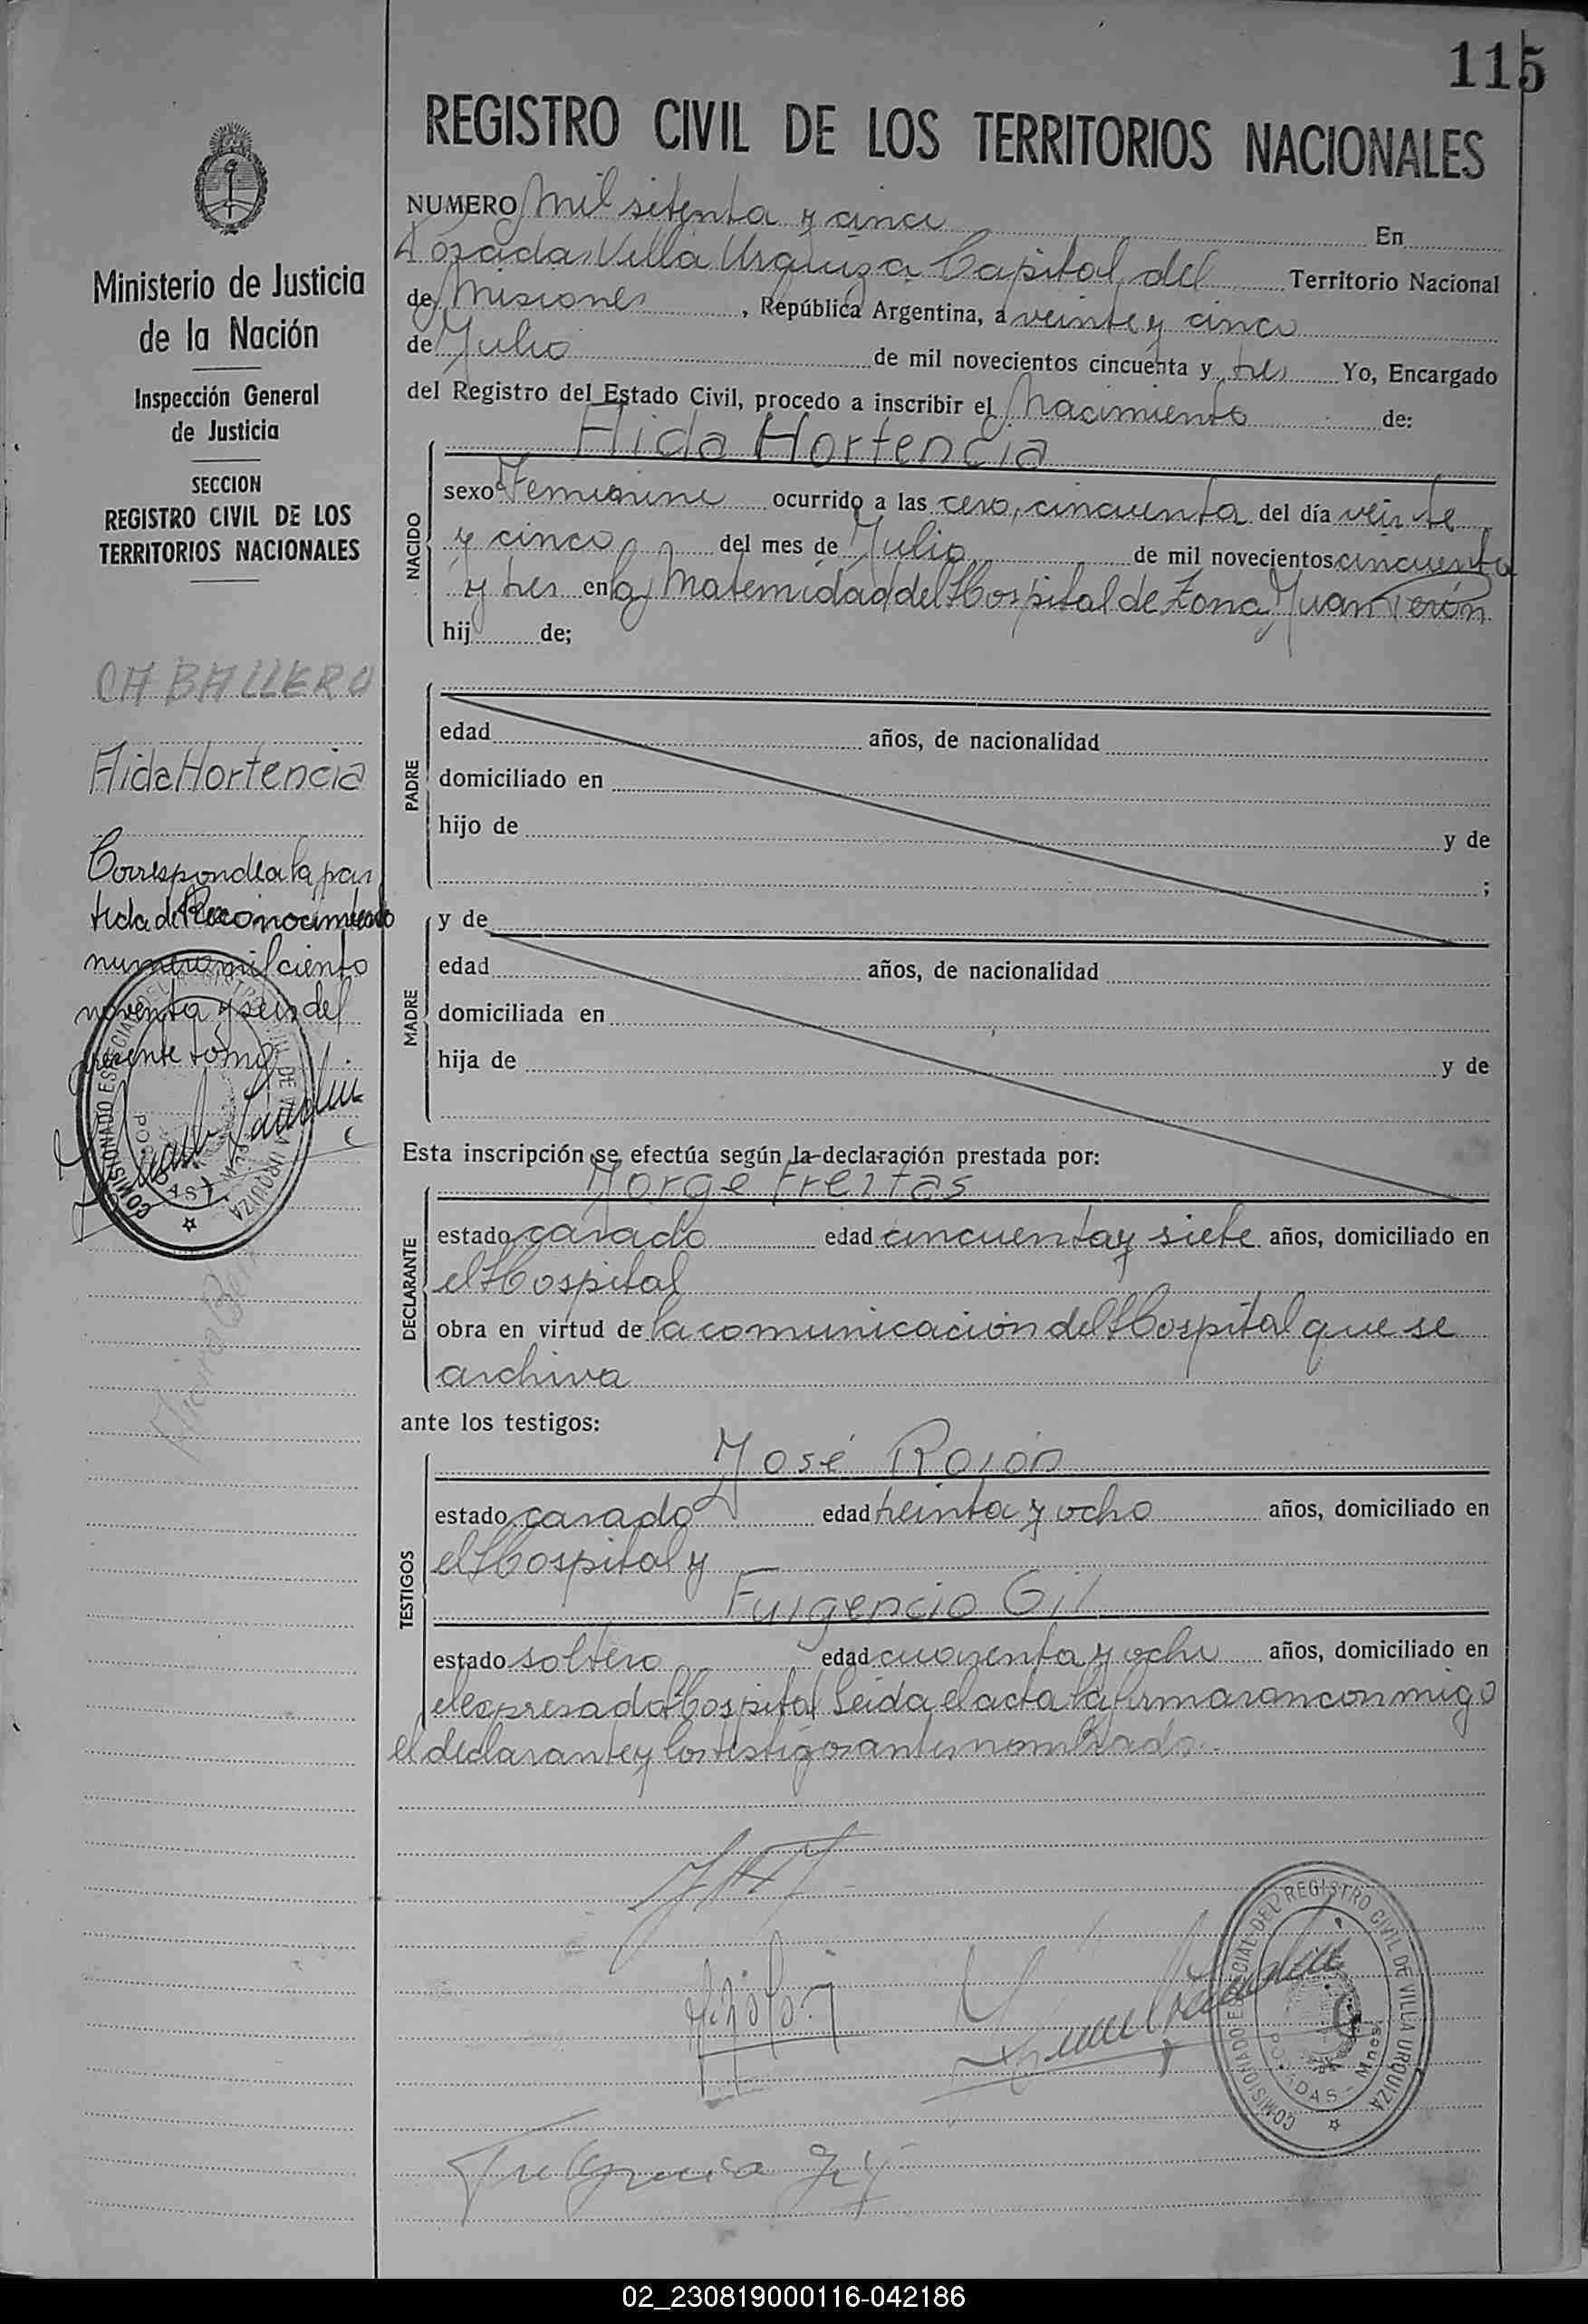 115
REGISTRO CIVIL DE LOS TERRITORIOS NACIONALES
NUMERO Mil setenta y cinco En
Posadas Villa Urquiza Capital del Territorio Nacional
de Misiones, República Argentina, a veinte y cinco
de Julio de mil novecientos cincuenta y tres Yo, Encargado
del Registro del Estado Civil, procedo a inscribir el Nacimiento de:
Aida Hortencia
NACIDO
sexo Femenino ocurrido a las cero, cincuenta del día veinte
y cinco del mes de Julio de mil novecientos cincuenta
y tres en la Maternidad del Hospital de Zona Juan Perón
hij de;
PADRE
edad años, de nacionalidad
domiciliado en
hijo de y de
;
MADRE
y de
edad años, de nacionalidad
domiciliada en
hija de y de
Esta inscripción se efectúa según la declaración prestada por:
Jorge Freitas
DECLARANTE
estado casado edad cincuenta y siete años, domiciliado en
el Hospital
obra en virtud de la comunicación del Hospital que se
archiva
ante los testigos:
José Rolón
TESTIGOS
estado casado edad treinta y ocho años, domiciliado en
el Hospital y
Fulgencio Gil
estado soltero edad cuarenta y ocho años, domiciliado en
el expresado Hospital Leida el acta la firmaran conmigo
el declarante y los testigos antes nombrado.
Fulgencio Gil
COMISIONADO ESPECIAL DEL REGISTRO CIVIL DE VILLA URQUIZA
POSADAS - Mnes.
Ministerio de Justicia
de la Nación
Inspección General
de Justicia
SECCION
REGISTRO CIVIL DE LOS
TERRITORIOS NACIONALES
CABALLERO
Aida Hortencia
Corresponde a la par
tida de Reconocimiento
numero mil ciento
noventa y seis del
presente tomo
COMISIONADO ESPECIAL DEL REGISTRO CIVIL DE VILLA URQUIZA
02_230819000116-042186